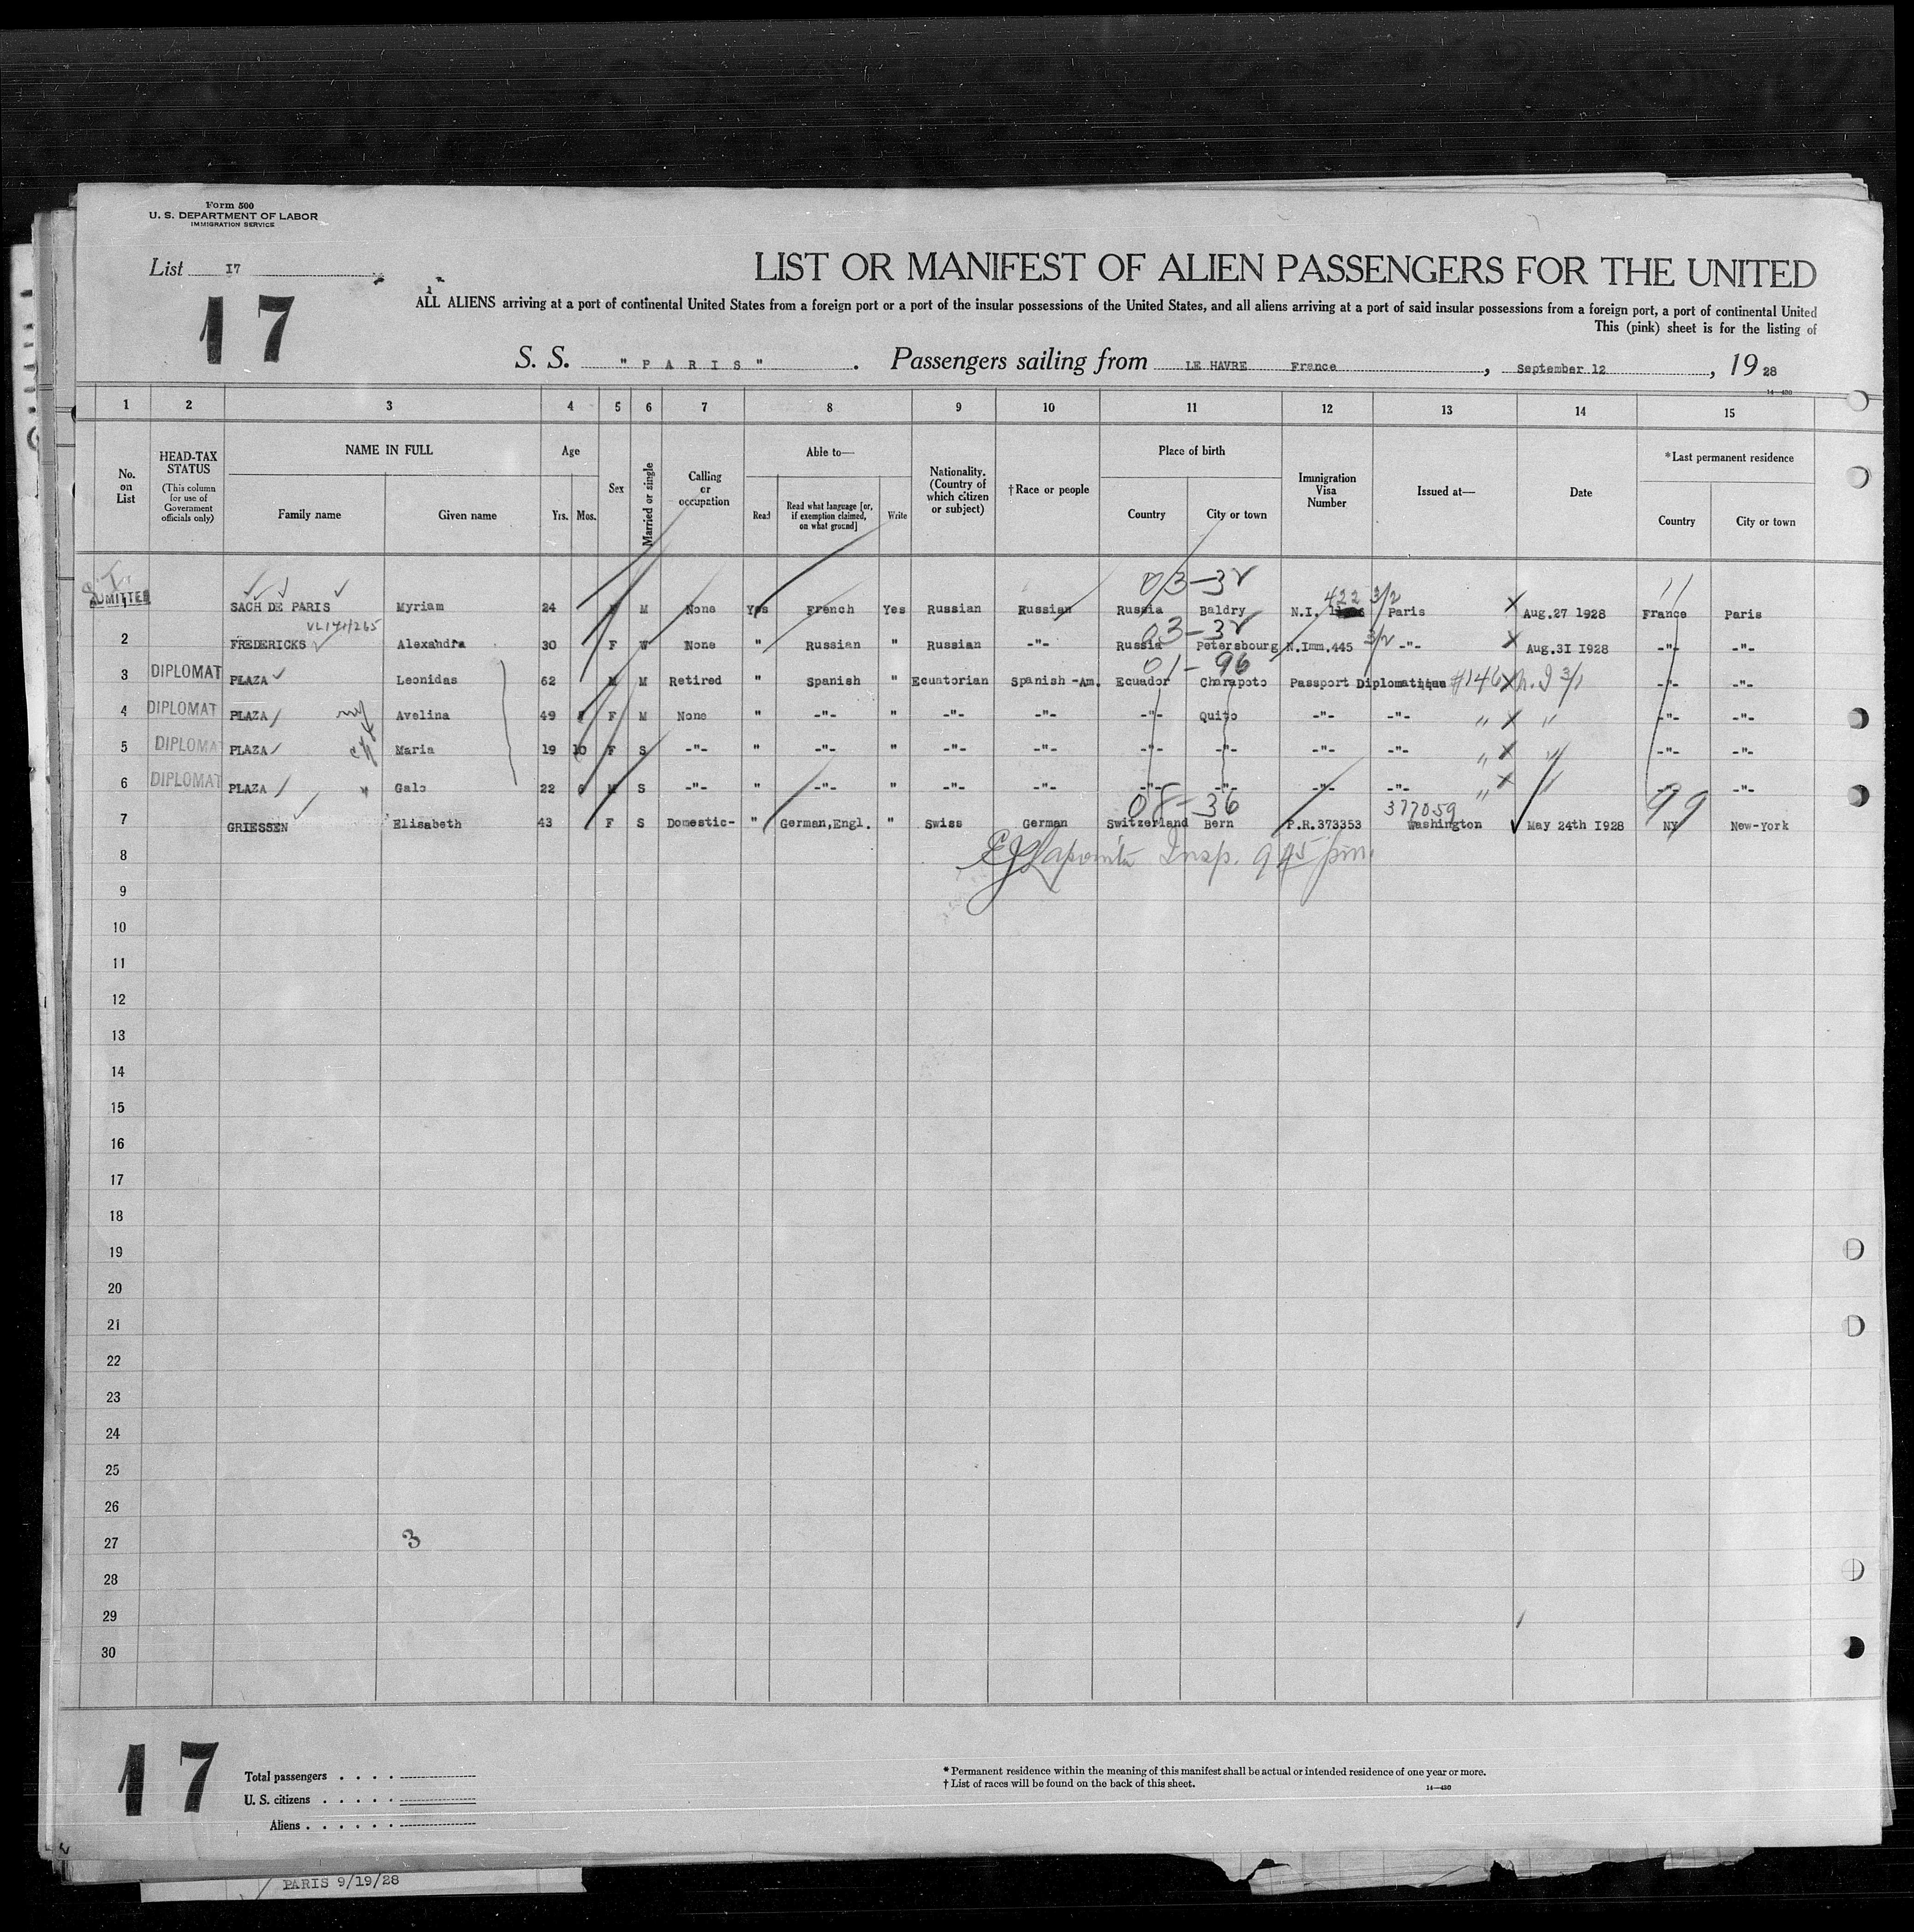 Form 500
U. S. DEPARTMENT OF LABOR
IMMIGRATION SERVICE
List I7
17
LIST OR MANIFEST OF ALIEN PASSENGERS FOR THE UNITED
ALL ALIENS arriving at a port of continental United States from a foreign port or a port of the insular possessions of the United States, and all aliens arriving at a port of said insular possessions from a foreign port, a port of continental United
This (pink) sheet is for the listing of
S. S. " P A R I S " . Passengers sailing from LE HAVRE France , September 12 , 19 28
14—430
1 2 3 4 5 6 7 8 9 10 11 12 13 14 15
No. on List
HEAD-TAX STATUS
(This column for use of Government officials only)
NAME IN FULL
Family name Given name
Age
Yrs. Mos.
Sex
Married or single
Calling or occupation
Able to—
Read Read what language [or, if exemption claimed, on what ground] Write
Nationality. (Country of which citizen or subject)
†Race or people
Place of birth
Country City or town
Immigration Visa Number
Issued at—
Date
*Last permanent residence
Country City or town
03-32 422 3/2 11
ADMITTED SACH DE PARIS Myriam 24 F M None Yes French Yes Russian Russian Russia Baldry N.I. Paris X Aug.27 1928 France Paris
03-32 3/2
2 FREDERICKS Alexandra 30 F W None " Russian " Russian -"- Russia Petersbourg N.Imm.445 -"- X Aug.3I I928 -"- -"-
01-96
3 DIPLOMAT PLAZA Leonidas 62 M M Retired " Spanish " Ecuatorian Spanish -Am. Ecuador Charapoto Passport Diplomatique #146 X 3/1 -"- -"-
4 DIPLOMAT PLAZA Avelina 49 F M None " -"- " -"- -"- -"- Quito -"- -"- " X " -"- -"-
5 DIPLOMA PLAZA Maria 19 10 F S -"- " -"- " -"- -"- -"- -"- -"- -"- " X " -"- -"-
6 DIPLOMAT PLAZA " Galo 22 M S -"- " -"- " -"- -"- -"- -"- -"- -"- " X " -"- -"-
08-36 377059 99
7 GRIESSEN Elisabeth 43 F S Domestic- " German,Engl. " Swiss German Switzerland Bern P.R.373353 Washington May 24th I928 NY New-York
8 Insp. 945 pm.
9
10
11
12
13
14
15
16
17
18
19
20
21
22
23
24
25
26
27 3
28
29
30
17
Total passengers . . . .
U. S. citizens . . . . .
Aliens . . . . . .
* Permanent residence within the meaning of this manifest shall be actual or intended residence of one year or more.
† List of races will be found on the back of this sheet.
14—430
PARIS 9/19/28